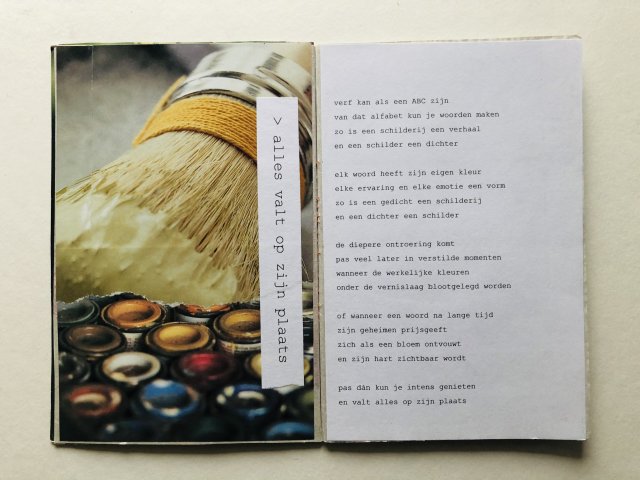 > alles valt op zijn plaats
verf kan als een ABC zijn
van dat alfabet kun je woorden maken
zo is een schilderij een verhaal
en een schilder een dichter
elk woord heeft zijn eigen kleur
elke ervaring en elke emotie een vorm
zo is een gedicht een schilderij
en een dichter een schilder
de diepere ontroering komt
pas veel later in verstilde momenten
wanneer de werkelijke kleuren
onder de vernislaag blootgelegd worden
of wanneer een woord na lange tijd
zijn geheimen prijsgeeft
zich als een bloem ontvouwt
en zijn hart zichtbaar wordt
pas dán kun je intens genieten
en valt alles op zijn plaats